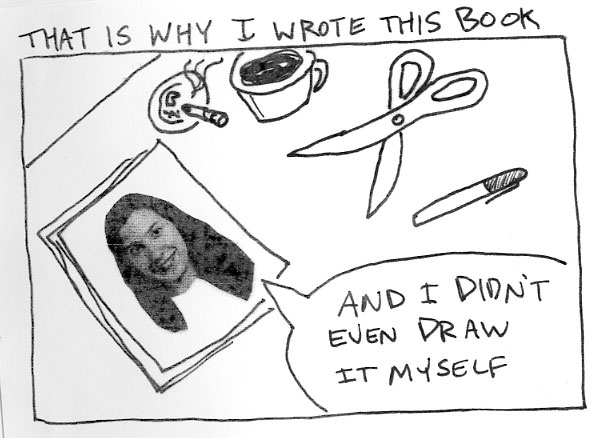 THAT IS WHY I WROTE THIS BOOK
AND I DIDN'T
EVEN DRAW
IT MYSELF